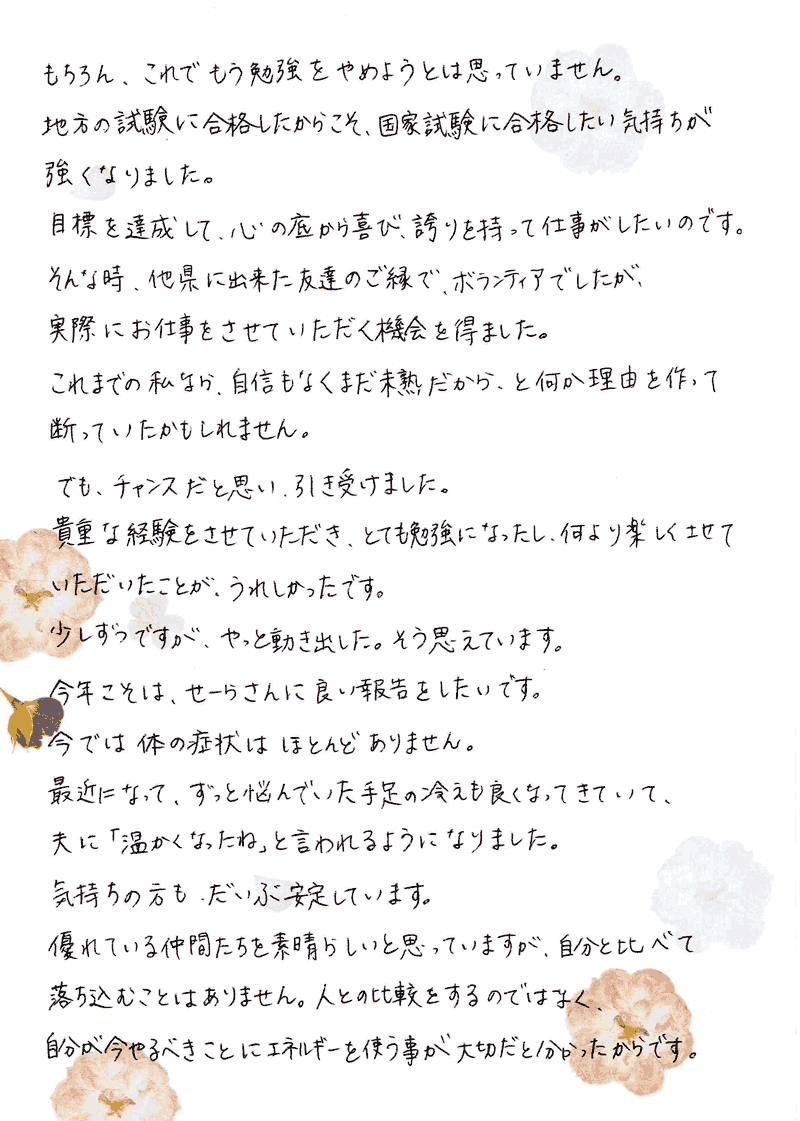 もちろん、これでもう勉強をやめようとは思っていません。
地方の試験に合格したからこそ、国家試験に合格したい気持ちが
強くなりました。
目標を達成して、心の底から喜び、誇りを持って仕事がしたいのです。
そんな時、他県に出来た友達のご縁で、ボランティアでしたが、
実際にお仕事をさせていただく機会を得ました。
これまでの私なら、自信もなくまだ未熟だから、と何か理由を作って
断っていたかもしれません。
でも、チャンスだと思い、引き受けました。
貴重な経験をさせていただき、とても勉強になったし、何より楽しくさせて
いただいたことが、うれしかったです。
少しずつですが、やっと動き出した。そう思えています。
今年こそは、せーらさんに良い報告をしたいです。
今では体の症状はほとんどありません。
最近になって、ずっと悩んでいた手足の冷えも良くなってきていて、
夫に「温かくなったね」と言われるようになりました。
気持ちの方も、だいぶ安定しています。
優れている仲間たちを素晴らしいと思っていますが、自分と比べて
落ち込むことはありません。人との比較をするのではなく、
自分が今やるべきことにエネルギーを使う事が大切だと分かったからです。